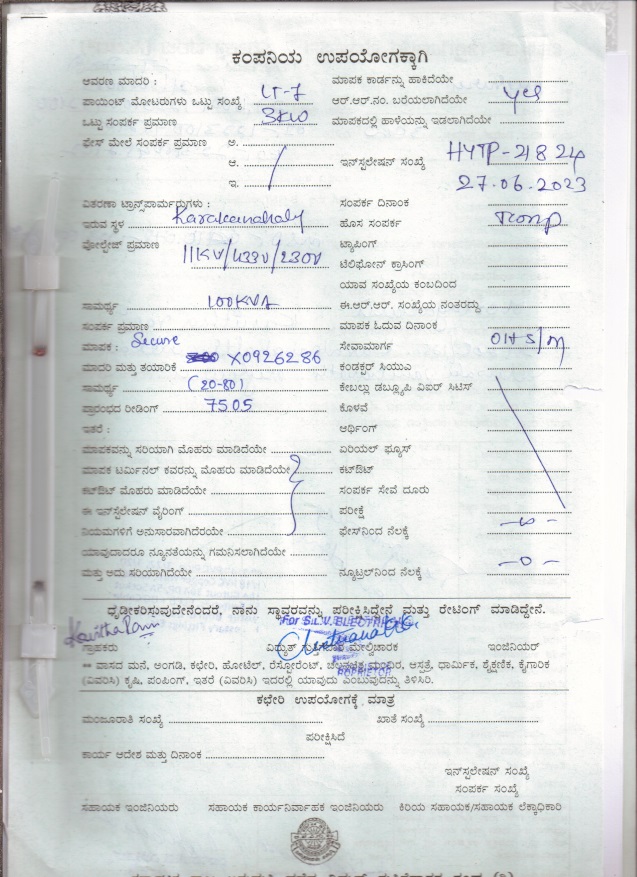 ಕಂಪನಿಯ ಉಪಯೋಗಕ್ಕಾಗಿ
ಆವರಣ ಮಾದರಿ : LT-7
ಪಾಯಿಂಟ್ ಮೋಟರುಗಳು ಒಟ್ಟು ಸಂಖ್ಯೆ
ಒಟ್ಟು ಸಂಪರ್ಕ ಪ್ರಮಾಣ 3KW
ಫೇಸ್ ಮೇಲೆ ಸಂಪರ್ಕ ಪ್ರಮಾಣ ಅ.
ಆ.
ಇ.
ವಿತರಣಾ ಟ್ರಾನ್ಸ್‌ಪಾರ್ಮರ್‍ರುಗಳು :
ಇರುವ ಸ್ಥಳ
ವೋಲ್ಟೇಜ್ ಪ್ರಮಾಣ 11KV/433V/230V
ಸಾಮರ್ಥ್ಯ 100KVA
ಸಂಪರ್ಕ ಪ್ರಮಾಣ
ಮಾಪಕ : Secure
ಮಾದರಿ ಮತ್ತು ತಯಾರಿಕೆ X0926286
ಸಾಮರ್ಥ್ಯ (20-80)
ಪ್ರಾರಂಭದ ರೀಡಿಂಗ್ 7505
ಇತರೆ :
ಮಾಪಕವನ್ನು ಸರಿಯಾಗಿ ಮೊಹರು ಮಾಡಿದೆಯೇ
ಮಾಪಕ ಟರ್ಮಿನಲ್ ಕವರನ್ನು ಮೊಹರು ಮಾಡಿದೆಯೇ
ಕಟ್‌ಔಟ್ ಮೊಹರು ಮಾಡಿದೆಯೇ
ಈ ಇನ್‌ಸ್ಟಲೇಷನ್ ವೈರಿಂಗ್
ನಿಯಮಗಳಿಗೆ ಅನುಸಾರವಾಗಿದೆರಯೇ
ಯಾವುದಾದರೂ ನ್ಯೂನತೆಯನ್ನು ಗಮನಿಸಲಾಗಿದೆಯೇ
ಮತ್ತು ಅದು ಸರಿಯಾಗಿದೆಯೇ
ಮಾಪಕ ಕಾರ್ಡನ್ನು ಹಾಕಿದೆಯೇ
ಆರ್.ಆರ್.ನಂ. ಬರೆಯಲಾಗಿದೆಯೇ yes
ಮಾಪಕದಲ್ಲಿ ಹಾಳೆಯನ್ನು ಇಡಲಾಗಿದೆಯೇ
ಇನ್‌ಸ್ಟಲೇಷನ್ ಸಂಖ್ಯೆ HYTP-21824
27.06.2023
ಸಂಪರ್ಕ ದಿನಾಂಕ
ಹೊಸ ಸಂಪರ್ಕ
ಟ್ಯಾಪಿಂಗ್
ಟೆಲಿಫೋನ್ ಕ್ರಾಸಿಂಗ್
ಯಾವ ಸಂಖ್ಯೆಯ ಕಂಬದಿಂದ
ಈ.ಆರ್.ಆರ್. ಸಂಖ್ಯೆಯ ನಂತರದ್ದು
ಮಾಪಕ ಓದುವ ದಿನಾಂಕ
ಸೇವಾಮಾರ್ಗ OH S/M
ಕಂಡಕ್ಟರ್ ಸಿಯುವಿ
ಕೇಬಲ್ಲು ಡಬ್ಲ್ಯೂಪಿ ವಿಐರ್ ಸಿಟಿಸ್
ಕೊಳವೆ
ಆರ್ಥಿಂಗ್
ಏರಿಯಲ್ ಫ್ಯೂಸ್
ಕಟ್‌ಔಟ್
ಸಂಪರ್ಕ ಸೇವೆ ದೂರು
ಪರೀಕ್ಷೆ
ಫೇಸ್‌ನಿಂದ ನೆಲಕ್ಕೆ
ನ್ಯೂಟ್ರಲ್‌ನಿಂದ ನೆಲಕ್ಕೆ -0-
ಧೃಡೀಕರಿಸುವುದೇನೆಂದರೆ, ನಾನು ಸ್ಥಾವರವನ್ನು ಪರೀಕ್ಷಿಸಿದ್ದೇನೆ ಮತ್ತು ರೇಟಿಂಗ್ ಮಾಡಿದ್ದೇನೆ.
For S.L.V. ELECTRICALS
ಗ್ರಾಹಕರು ವಿದ್ಯುತ್ ಗುತ್ತಿಗೆದಾರ ಮೇಲ್ವಿಚಾರಕ ಇಂಜಿನಿಯರ್
PROPRIETOR
** ವಾಸದ ಮನೆ, ಅಂಗಡಿ, ಕಛೇರಿ, ಹೋಟೆಲ್, ರೆಸ್ಟೋರೆಂಟ್, ಚಲನಚಿತ್ರ ಮಂದಿರ, ಆಸ್ಪತ್ರೆ, ಧಾರ್ಮಿಕ, ಶೈಕ್ಷಣಿಕ, ಕೈಗಾರಿಕ
(ವಿವರಿಸಿ) ಕೃಷಿ, ಪಂಪಿಂಗ್, ಇತರೆ (ವಿವರಿಸಿ) ಇದರಲ್ಲಿ ಯಾವುದು ಎಂಬುವುದನ್ನು ತಿಳಿಸಿರಿ.
ಕಛೇರಿ ಉಪಯೋಗಕ್ಕೆ ಮಾತ್ರ
ಮಂಜೂರಾತಿ ಸಂಖ್ಯೆ ಖಾತೆ ಸಂಖ್ಯೆ
ಪರೀಕ್ಷಿಸಿದೆ
ಕಾರ್ಯ ಆದೇಶ ಮತ್ತು ದಿನಾಂಕ
ಇನ್‌ಸ್ಟಲೇಷನ್ ಸಂಖ್ಯೆ
ಸಂಪರ್ಕ ಸಂಖ್ಯೆ
ಸಹಾಯಕ ಇಂಜಿನಿಯರು ಸಹಾಯಕ ಕಾರ್ಯನಿರ್ವಾಹಕ ಇಂಜಿನಿಯರು ಕಿರಿಯ ಸಹಾಯಕ/ಸಹಾಯಕ ಲೆಕ್ಕಾಧಿಕಾರಿ